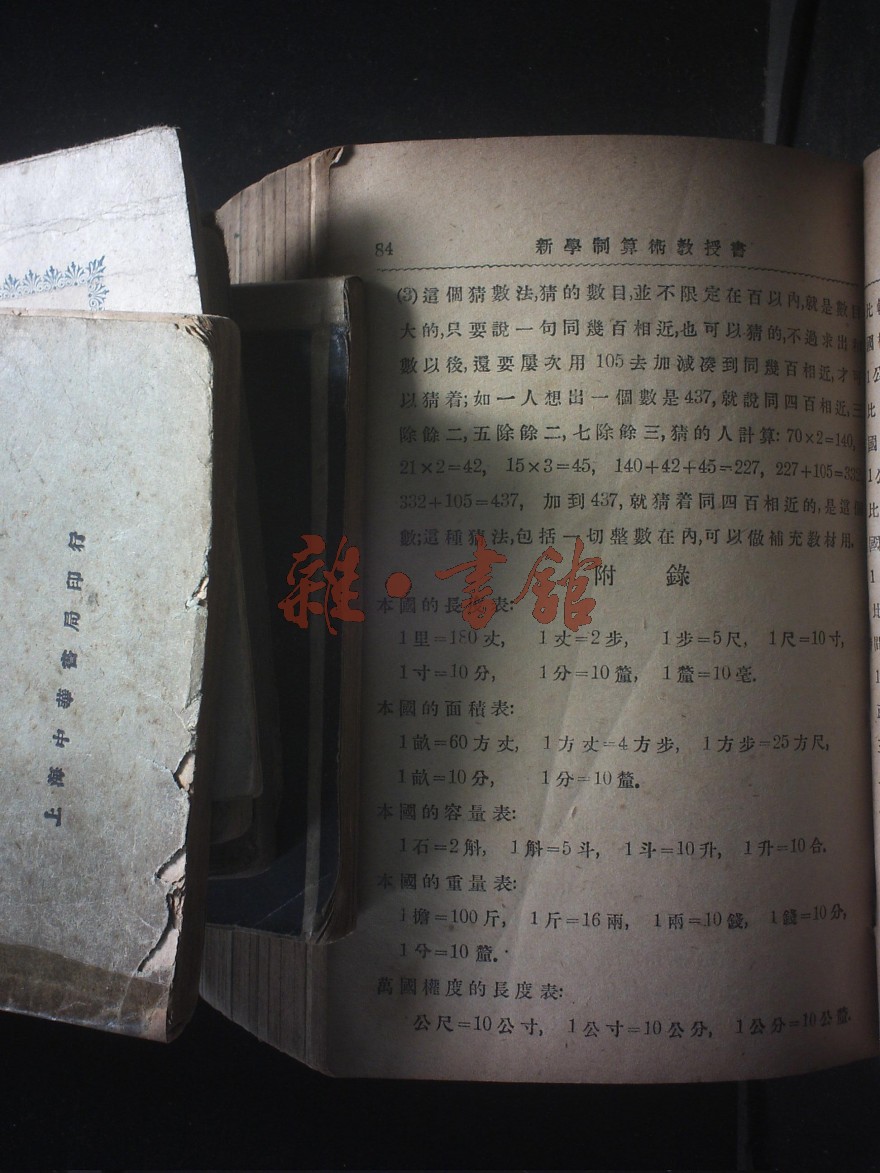 84 新學制算術教授書
(3)這個猜數法,猜的數目,並不限定在百以內,就是數
大的,只要說一句同幾百相近,也可以猜的,不過求出
數以後,還要屢次用 105 去加減凑到同幾百相近,才
以猜着;如一人想出一個數是437,就說同四百相近,三
除餘二,五除餘二,七除餘三,猜的人計算: 70×2=140,
21×2=42, 15×3=45, 140+42+45=227, 227+105=332
332+105=437, 加到437,就猜着同四百相近的,是這個
數;這種猜法,包括一切整數在內,可以做補充教材用.
附 錄
本國的長度表:
1里=180丈, 1丈=2步, 1步=5尺, 1尺=10寸,
1寸=10分, 1分=10釐, 1釐=10毫.
本國的面積表:
1畝=60方丈, 1方丈=4方步, 1方步=25方尺,
1畝=10分, 1分=10釐.
本國的容量表:
1石=2斛, 1斛=5斗, 1斗=10升, 1升=10合.
本國的重量表:
1擔=100斤, 1斤=16兩, 1兩=10錢, 1錢=10分,
1分=10釐.
萬國權度的長度表:
公尺=10公寸, 1公寸=10公分, 1公分=10公釐.
上海中華書局印行
雜·書館